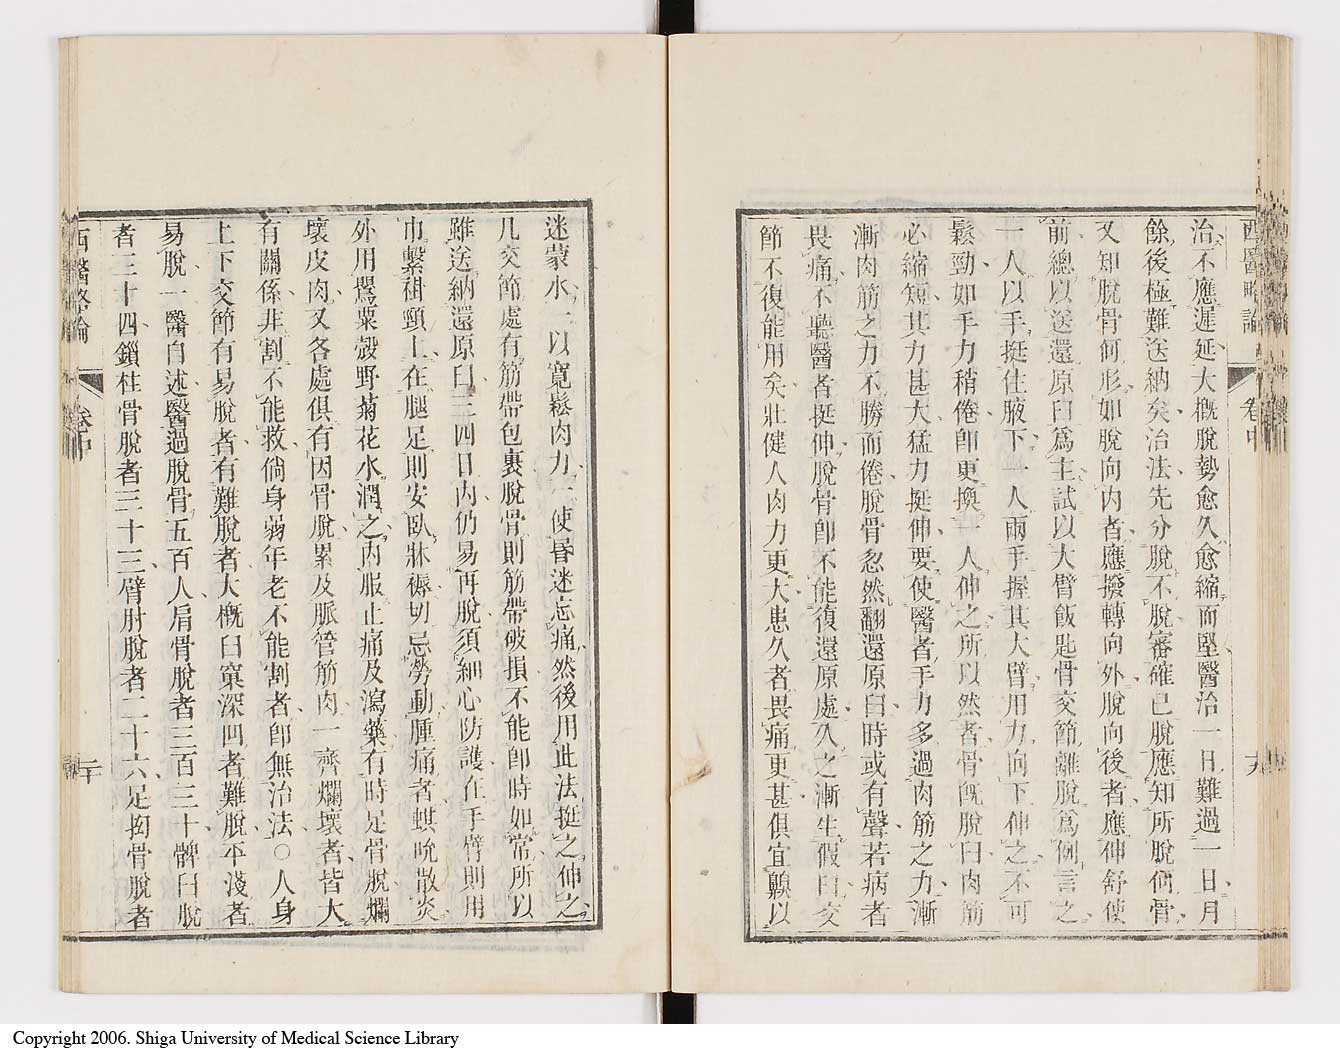 西醫略論 卷中 十九
治不應遲延大概脫勢愈久愈縮而堅醫治一日難過一日月
餘後極難送納矣治法先分脫不脫審確已脫應知所脫何骨
又知脫骨何形如脫向內者應撥轉向外脫向後者應伸舒使
前總以送還原臼爲主試以大臂飯匙骨交節離脫爲例言之
一人以手挺住腋下一人兩手握其大臂用力向下伸之不可
鬆勁如手力稍倦卽更換一人伸之所以然者骨旣脫臼肉筋
必縮短其力甚大猛力挺伸要使醫者手力多過肉筋之力漸
漸肉筋之力不勝而倦脫骨忽然翻還原臼時或有聲若病者
畏痛不聽醫者挺伸脫骨卽不能復還原處久之漸生假臼交
節不復能用矣壯健人肉力更大患久者畏痛更甚俱宜齅以
迷蒙水一以寬鬆肉力一使昏迷忘痛然後用此法挺之伸之
凡交節處有筋帶包裹脫骨則筋帶破損不能卽時如常所以
雖送納還原臼三四日內仍易再脫須細心防護在手臂則用
巾繫裋頸上在腿足則安臥牀褥切忌勞動腫痛者蜞吮散炎
外用罵粟殼野菊花水潤之內服止痛及瀉藥有時足骨脫爛
壞皮肉又各處俱有因骨脫累及脈管筋肉一齊爛壞者皆大
有關係非割不能救倘身弱年老不能割者卽無治法○人身
上下交節有易脫者有難脫者大概臼窠深凹者難脫平淺者
易脫一醫自述醫過脫骨五百人肩骨脫者三百三十髀臼脫
者三十四鎖柱骨脫者三十三臂肘脫者二十六足拗骨脫者
西醫略論 卷中 二十
Copyright 2006. Shiga University of Medical Science Library